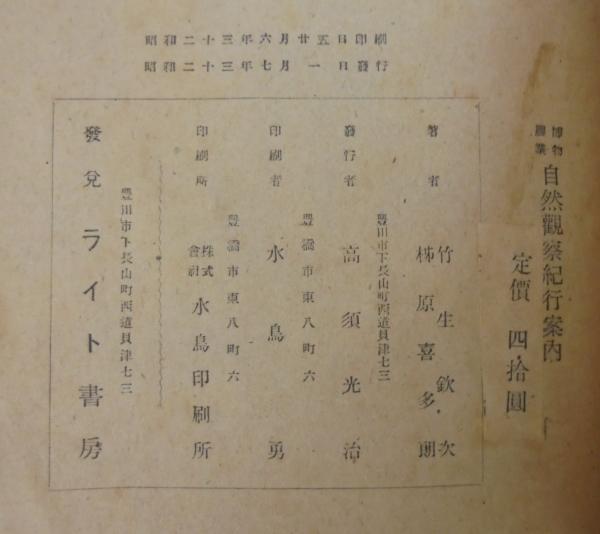 昭和二十三年六月廿五日印刷
昭和二十三年七月一日發行
博物
農業
自然觀察紀行案內
定價 四拾圓
著者
竹生欽次
柹原喜多朗
豊川市下長山町西道貝津七三
發行者 高須光治
豊橋市東八町六
印刷者 水鳥勇
豊橋市東八町六
印刷所 株式會社 水鳥印刷所
豊川市下長山町西道貝津七三
發兌 ライト書房